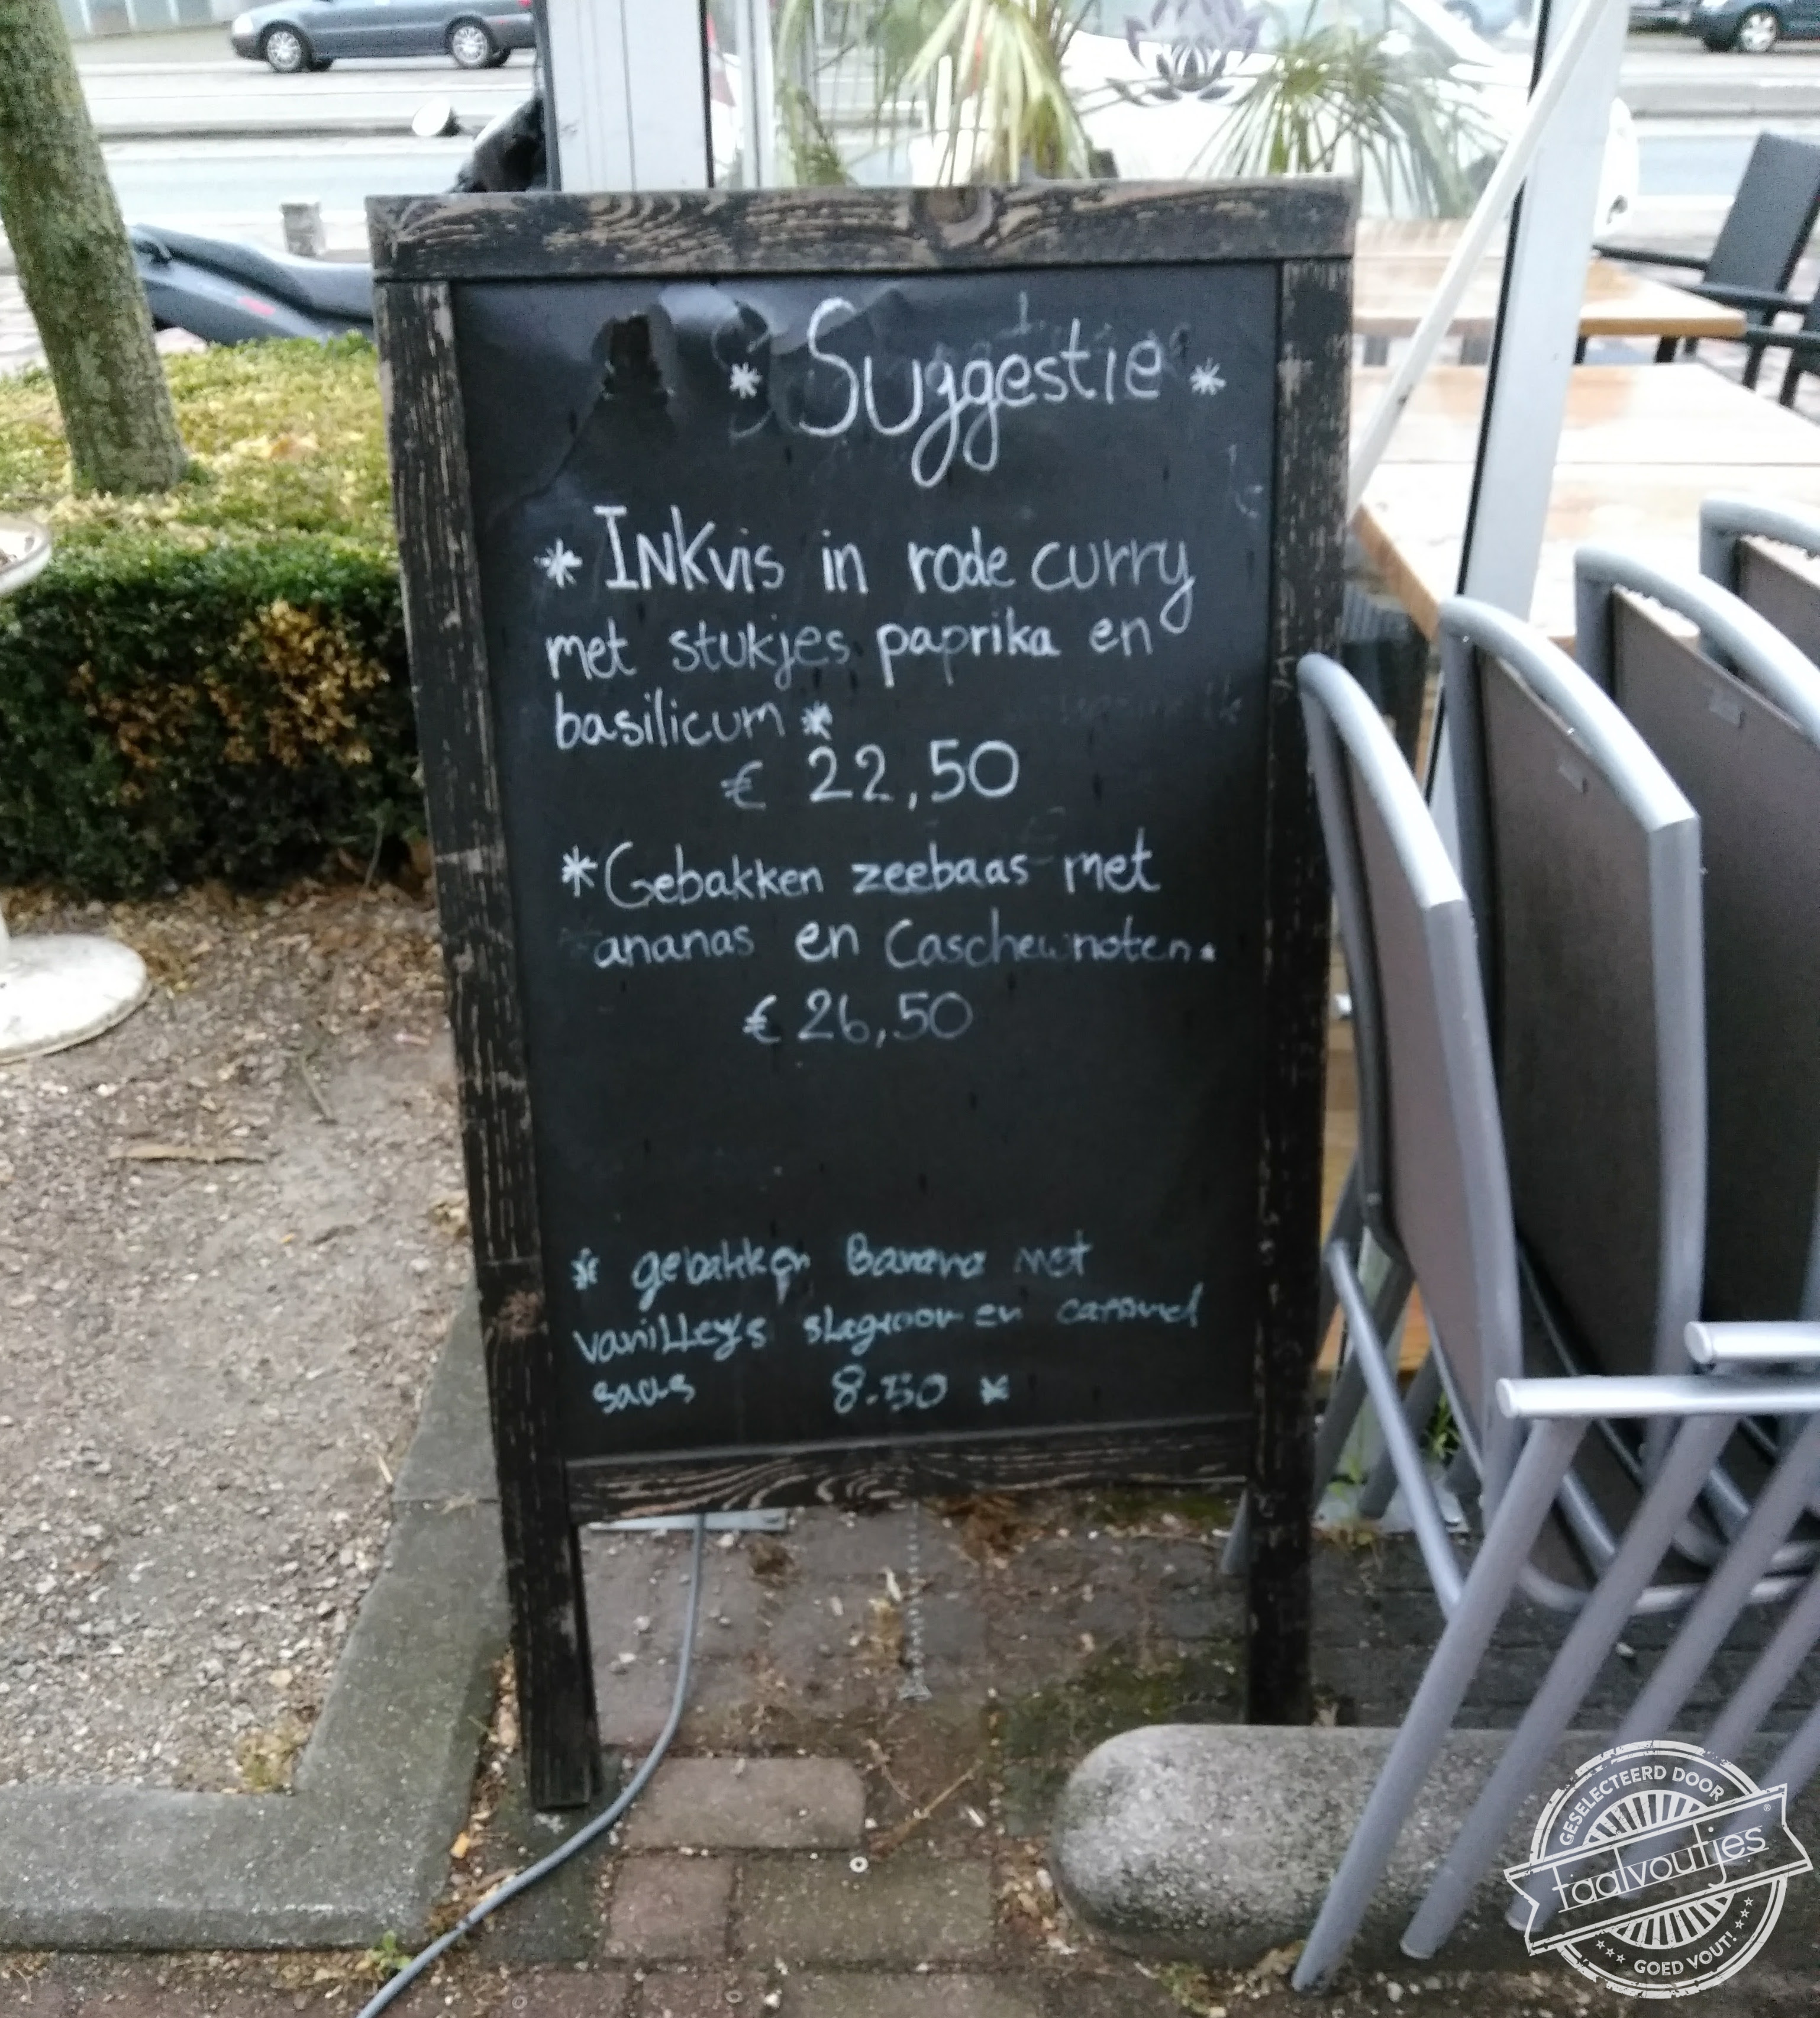 * Suggestie *
* INKvis in rode curry
met stukjes paprika en
basilicum *
€ 22,50
* Gebakken zeebaas met
ananas en Caschewnoten.
€ 26,50
* gebakken Banana met
vanilleys slagroom en caramel
saus 8.50 *
GESELECTEERD DOOR
taalvoutjes ®
GOED VOUT!